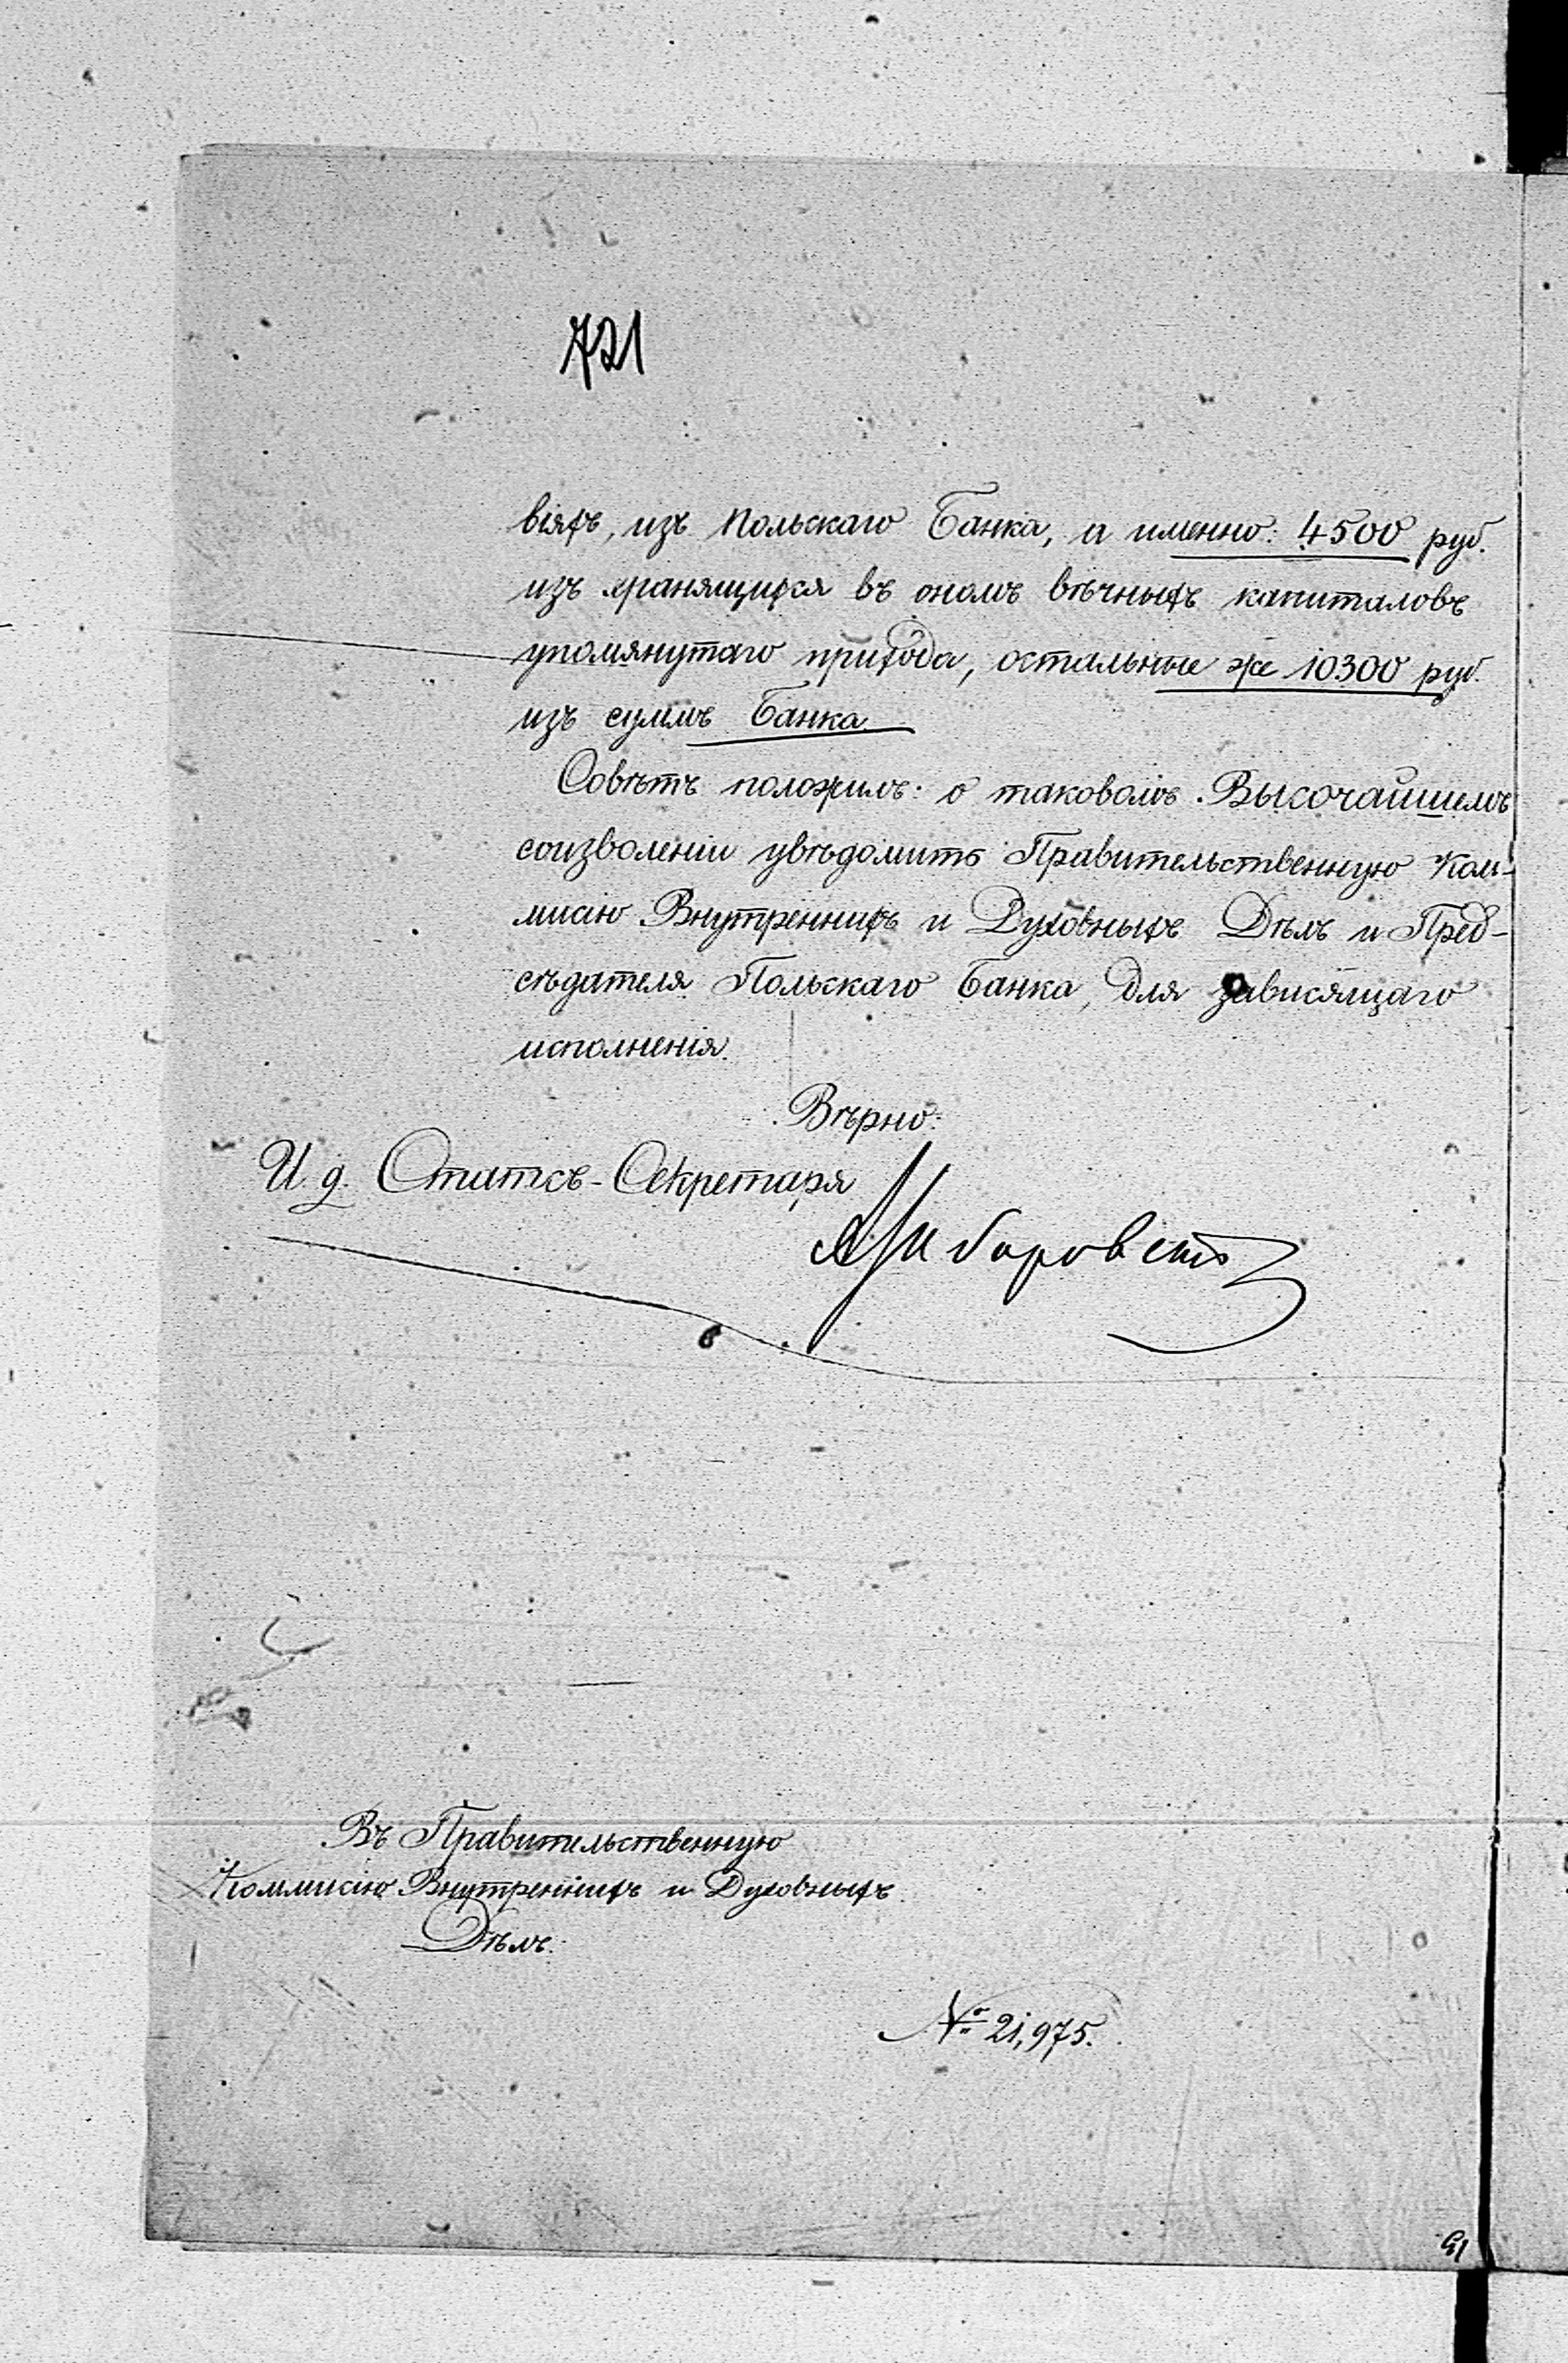 721
віяхъ, изъ Польскаго Банка, а именно: 4500 руб.
изъ хранящихся въ ономъ вѣчныхъ капиталовъ
упомянутаго прихода, остальные же 10300 руб.
изъ суммъ Банка.
Совѣтъ положилъ: о таковомъ Высочайшемъ
соизволеніи увѣдомить Правительственную Ком-
мисію Внутреннихъ и Духовныхъ Дѣлъ и Пред-
сѣдателя Польскаго Банка, для зависящаго
исполненія.
Вѣрно:
И. д. Статсъ-Секретаря
Въ Правительственную
Коммисію Внутреннихъ и Духовныхъ
Дѣлъ.
№ 21,975.